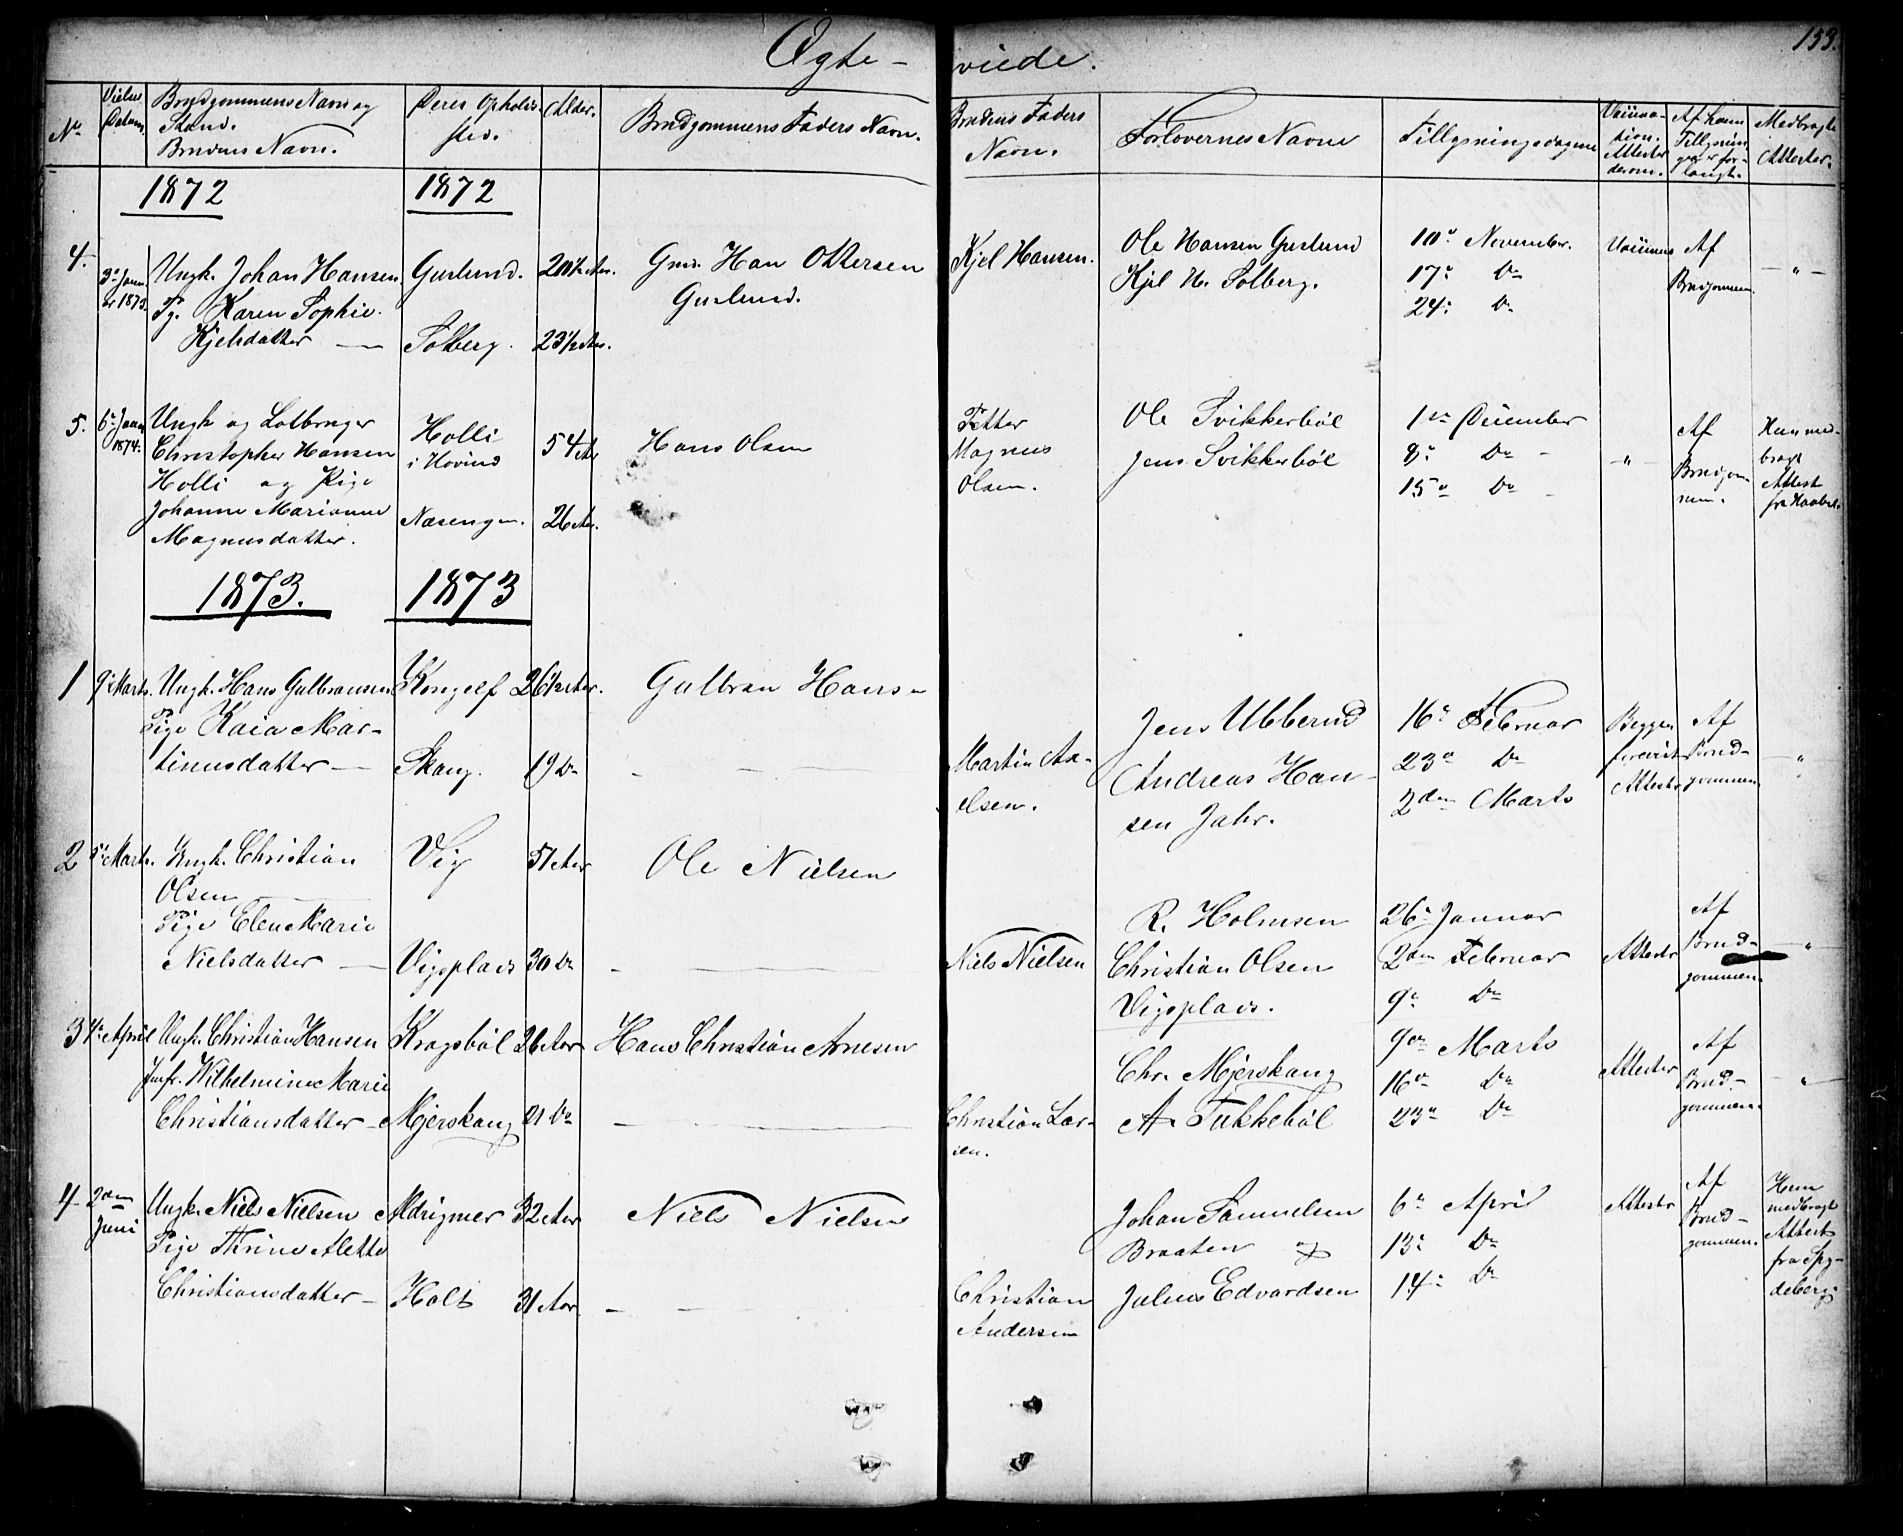 Ægte-viede.
153.
No
Vielses Datum.
Brudgommens Navn og
Stand.
Brudens Navn.
Deres Opholds-
sted.
Alder.
Brudgommens Faders Navn.
Brudens Faders
Navn.
Forlovernes Navne
Tillysningsdagene
Vaccina-
tion.
Attester
derom.
Af hvem
Tillysnin-
gen er for-
langt.
Medbragte
Attester.
1872
1872
4.
3. Janu-
ar 1873.
Ungk. Johan Hansen
Pg. Karen Sophie
Kjelsdatter —
Guslund.
Solberg.
20 1/2 Aar.
23 1/2 Aar.
Gmd. Han Ottersen
Guslund.
Kjel Hansen.
Ole Hansen Guslund
Kjel H. Solberg.
10. November.
17. Do
24. Do
Af
Brudgommen.
— " —
5.
6. Janu
1874.
Ungk og Lotbruger
Christopher Hansen
Holli og Pige
Johanne Marianne
Magnusdatter.
Holli
i Hovind
Næsengen.
54 Aar
26 Aar.
Hans Olsen
Petter
Magnus
Olsen.
Ole Svikkerböl
Jens Svikkerböl
1ste December
8. Do -
15. Do -
— " —
Af
Brudgom-
men.
Han med-
bragt
Attest
fra Haaböl.
1873.
1873
1
9. Marts.
Ungk. Hans Gulbransen
Pige Kaia Mar-
tinusdatter —
Kongelf
Skaug.
26 1/2 Aar.
19 Do
Gulbran Hans-
Martin Ax-
elsen.
Jens Ubberud
Andreas Han-
sen Jahr.
16. Februar
23. Do
2den Marts
Begges
foreviste
Attester
Af
Brud-
gommen.
— " —
2
5. Marts.
Ungk. Christian
Olsen
Pige Elen Marie
Nielsdatter —
Vig
Vigsplads
51 Aar
30 Do
Ole Nielsen
Niels Nielsen
R. Holmsen
Christian Olsen
Vigsplads.
26. Januar
2den Februar
9. Do
Attester
Af
Brud-
gommen.
— " —
3
4. April
Ungk. Christian Hansen
Jmfr. Wilhelmine Marie
Christiansdatter -
Kragsböl
Mjerskaug
26 Aar
21 Do
Hans Christian Arnesen
Christian Lar-
sen.
Chr. Mjerskaug
A Tukkeböl
9de Marts
16. Do
23. Do
Attester
Af
Brud-
gommen.
— " —
4
2den
Juni
Ungk. Niels Nielsen
Pige Thrine Alette
Christiansdatter —
Holt
32 Aar
31 Aar.
Niels Nielsen
Christian
Andersen
Johan Samuelsen
Braaten og
Julius Edvardsen
6. April
13. Do
14. Do
Attester
Af
Brud-
gommen.
Han
medbragte
Attest
fra Spy-
deberg.